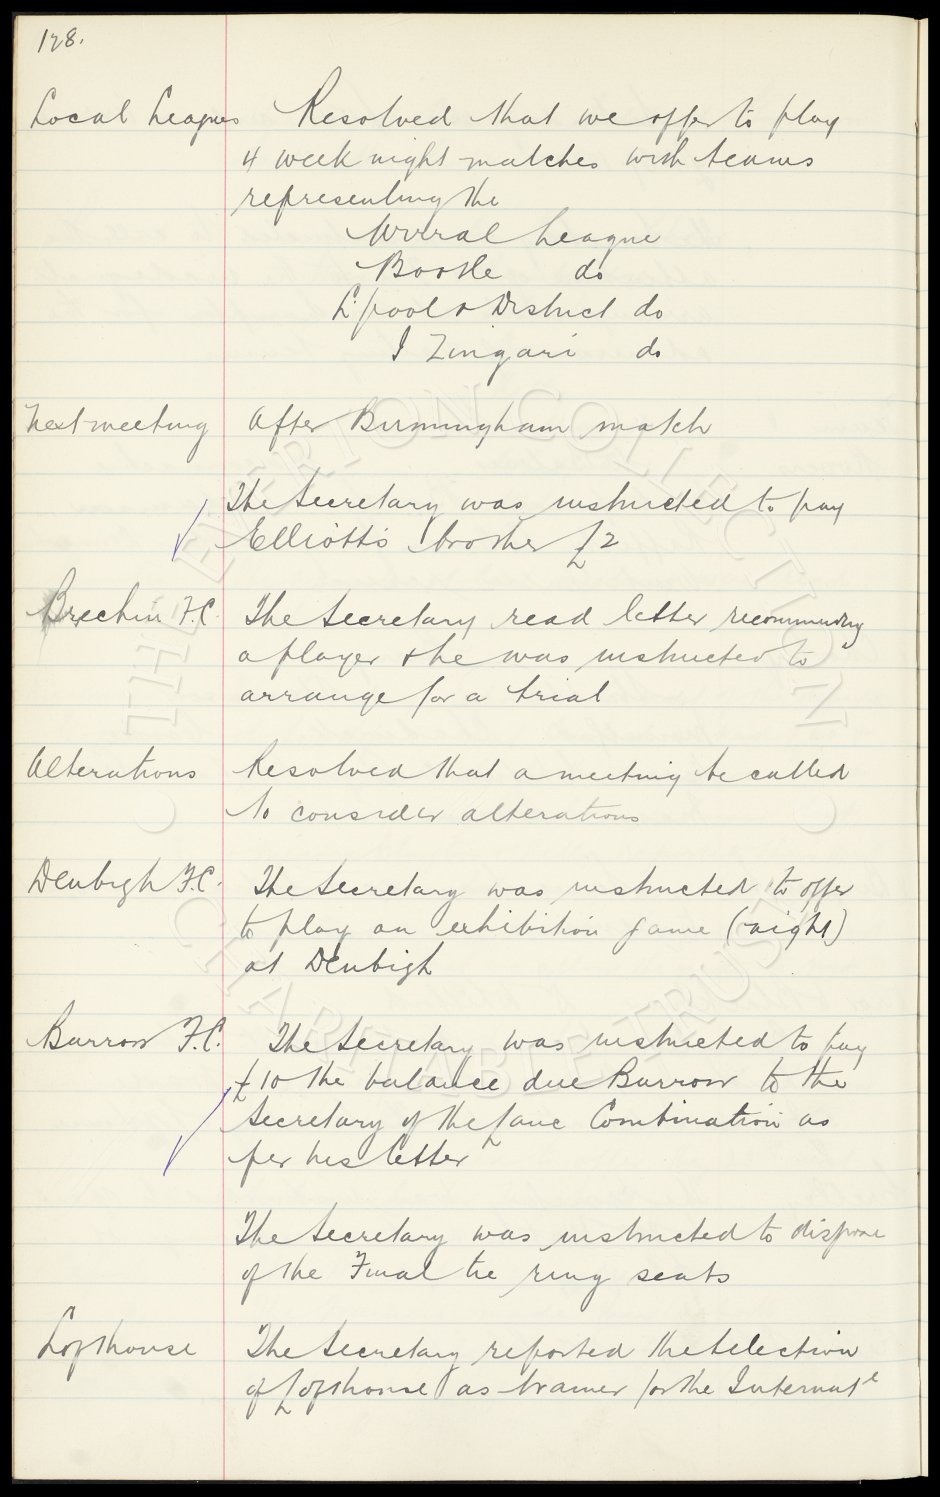 128.
Local Leagues Resolved that we offer to play
4 week night matches with teams
representing the
Wirral League
Bootle do
L'pool & District do
I Zingari do
Next meeting After Birmingham match
The Secretary was instructed to pay
Elliott's brother £2
Brechin F.C. The Secretary read letter recommendg
a player & he was instructed to
arrange for a trial
Alterations Resolved that a meeting be called
to consider alterations
Denbigh F.C. The Secretary was instructed to offer
to play an exhibition game (night)
at Denbigh
Barrow F.C. The Secretary was instructed to pay
£10 the balance due Barrow to the
Secretary of the Lanc Combination as
per his letter
The Secretary was instructed to dispose
of the Final tie ring seats
Lofthouse The Secretary reported the selection
of Lofthouse as trainer for the Internatl
THE EVERTON COLLECTION
CHARITABLE TRUST